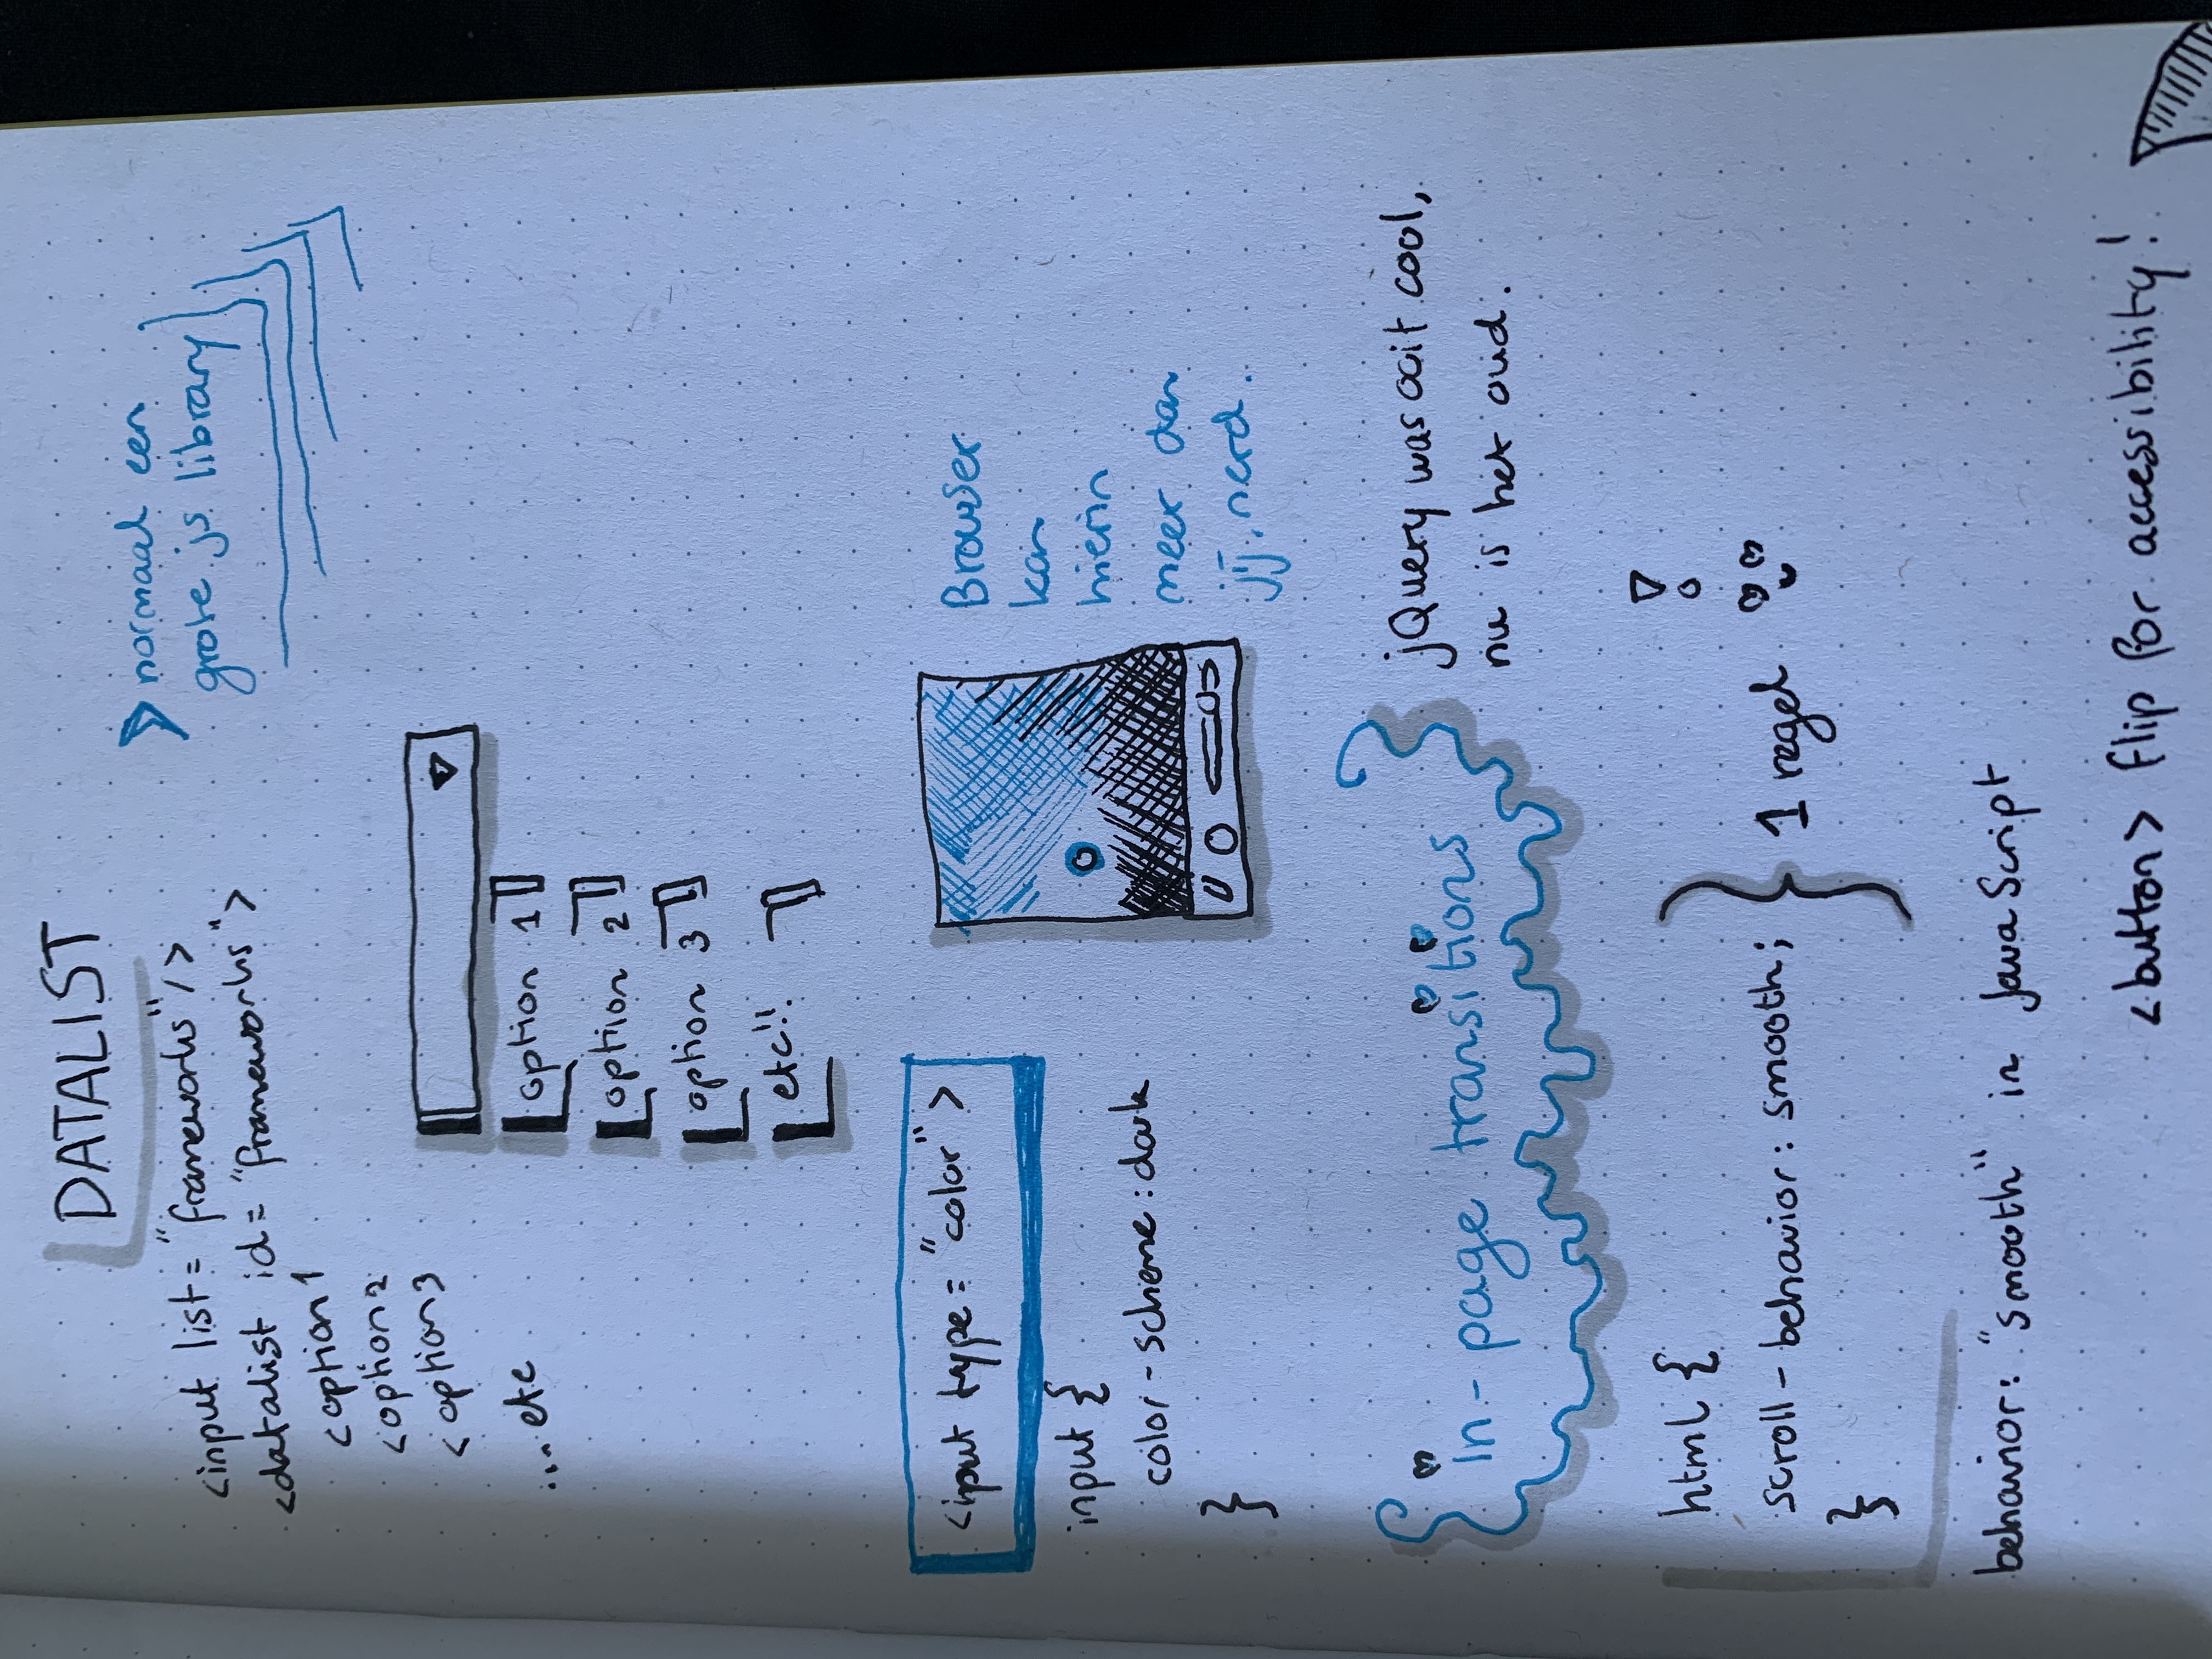 DATALIST
<input list="frameworks"/>
<datalist id="frameworks">
<option1
<option2
<option3
....etc
normaal een
grote js library
option 1
option 2
option 3
etc!!
<input type="color">
input {
color-scheme:dark
}
Browser
kan
hierin
meer dan
jij, nerd.
in-page transitions
jQuery was ooit cool,
nu is het oud.
html {
scroll-behavior: smooth;
}
1 regel
behavior: "smooth" in JavaScript
<button> flip for accessibility!